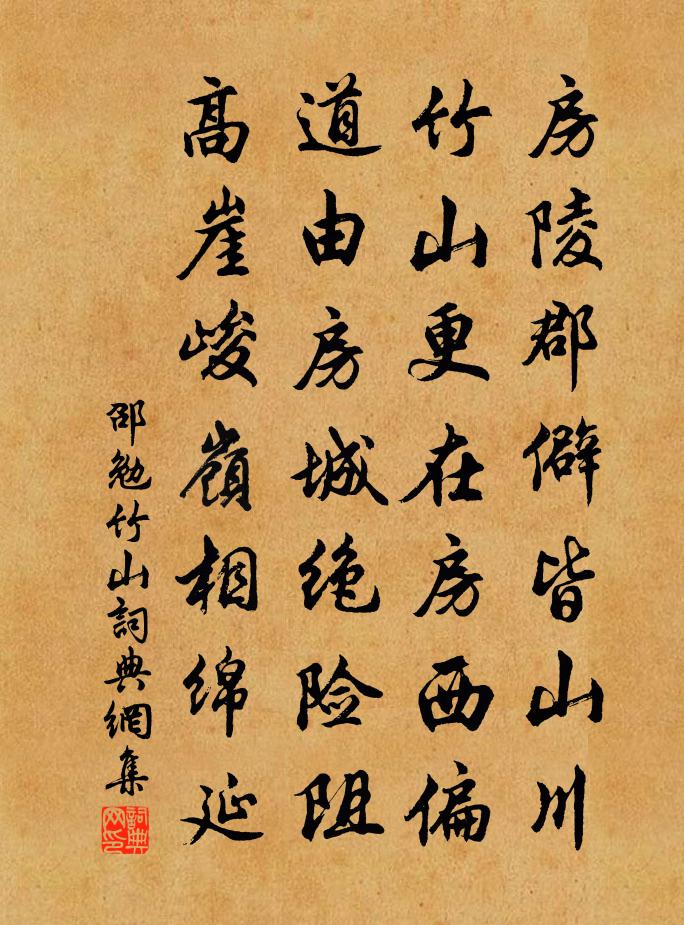 房陵郡僻皆山川
竹山更在房西偏
道由房城绝险阻
高崖峻嶺相绵延
邵勉竹山詞典網集
詞典网印